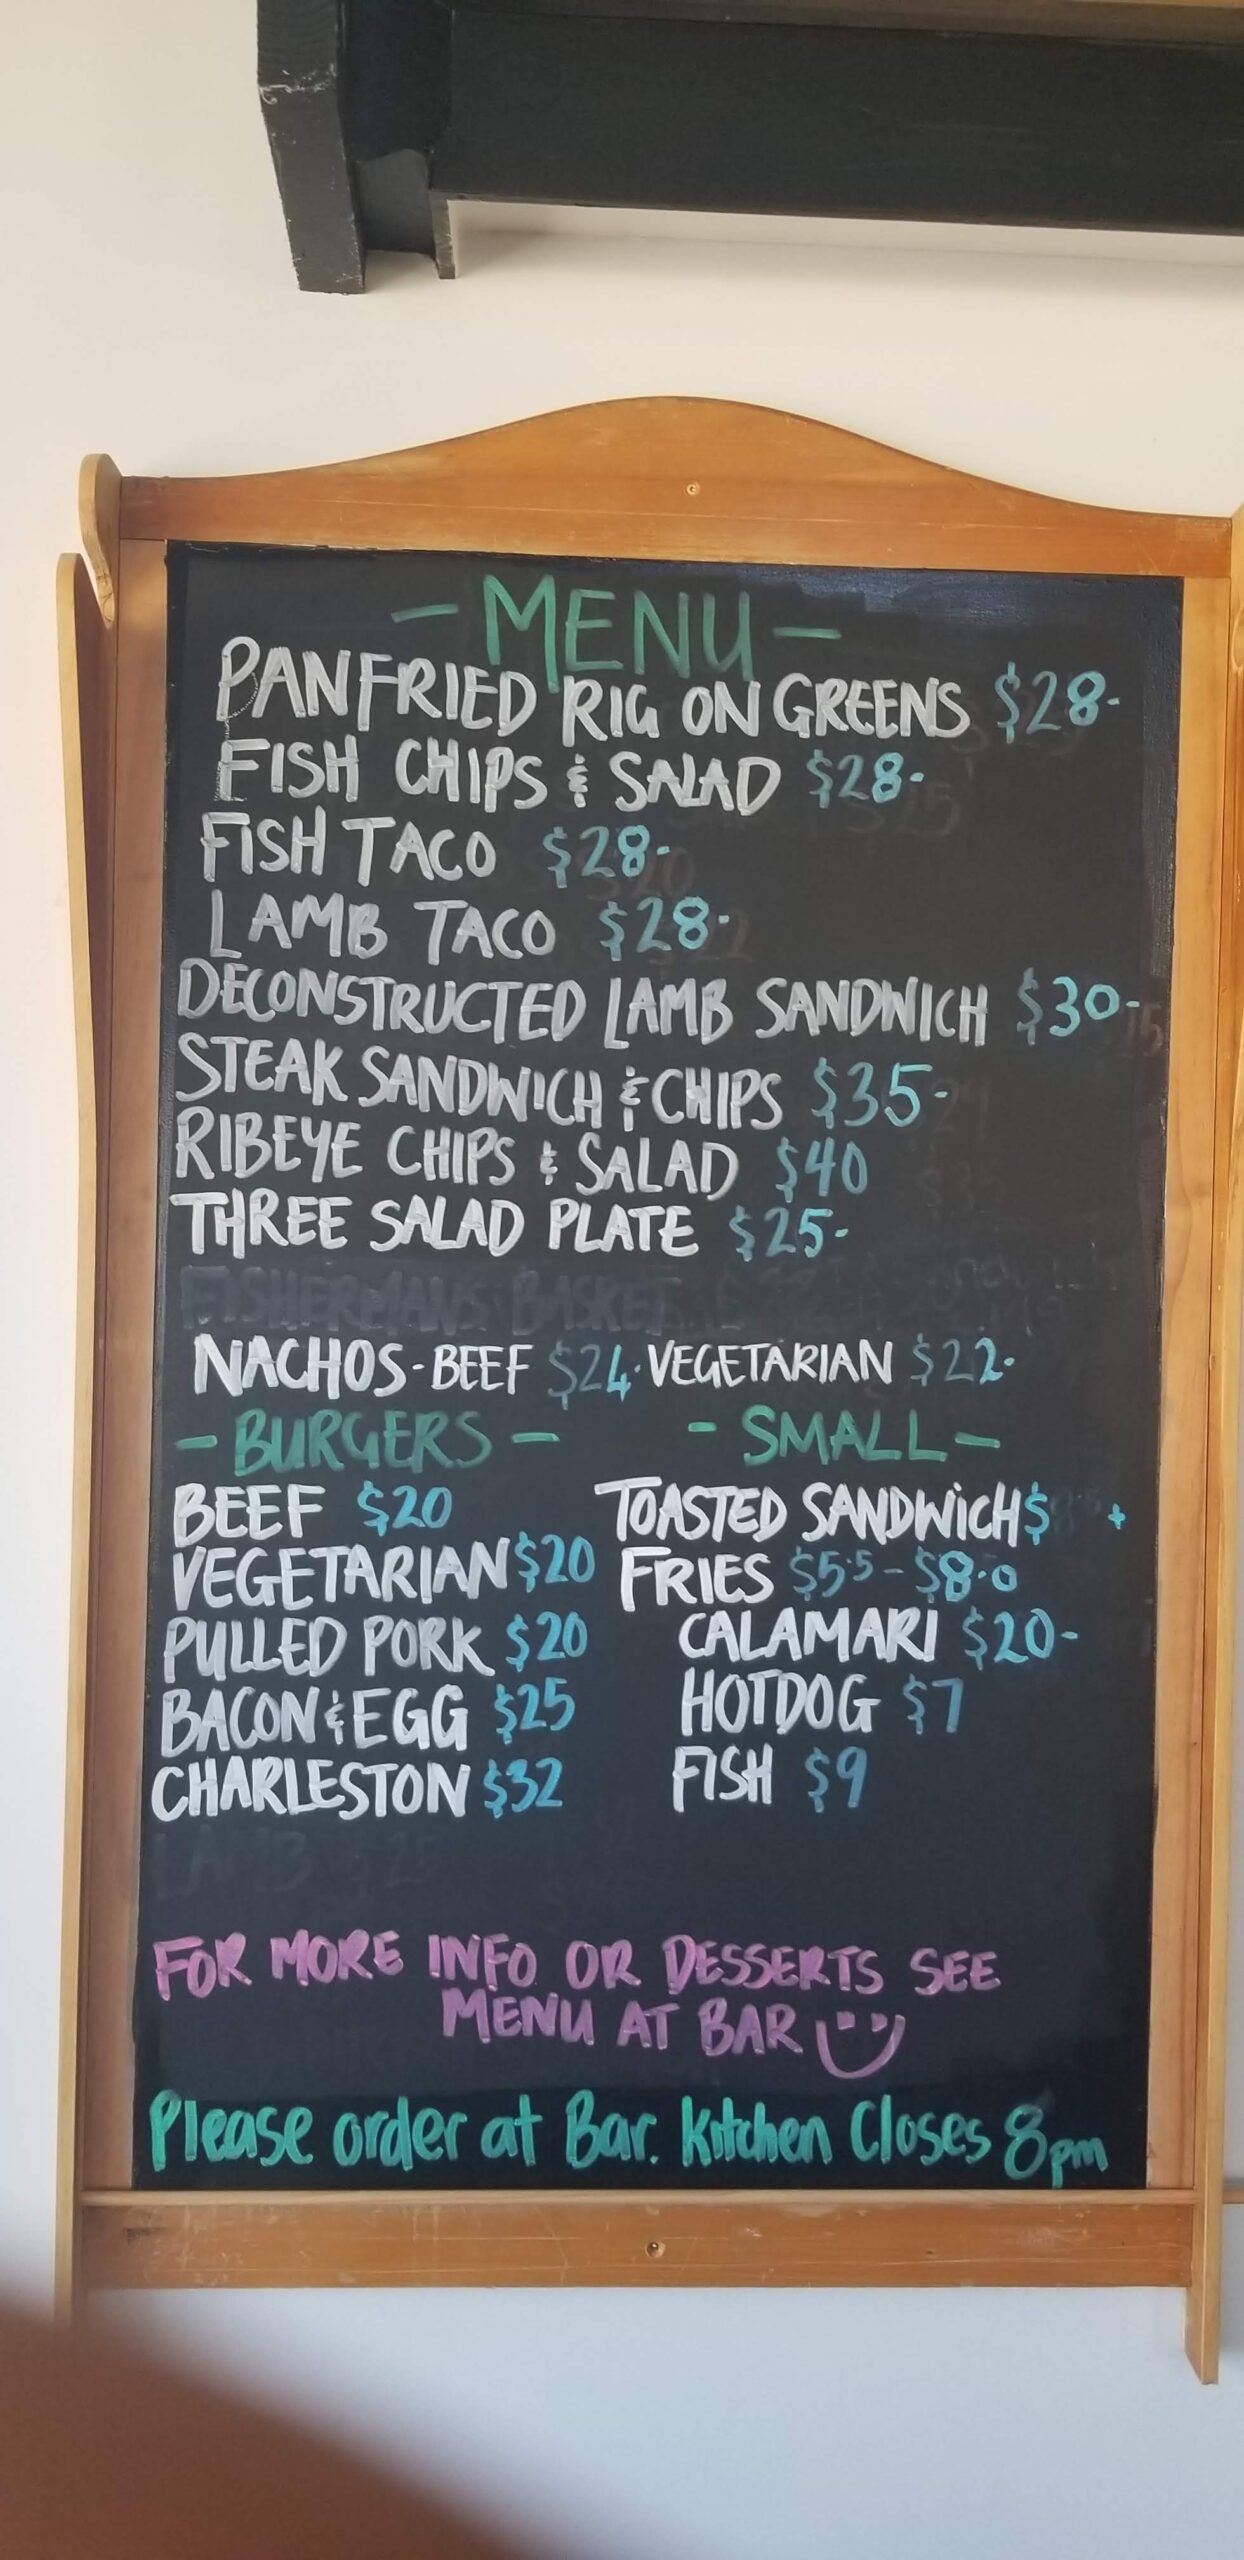 - MENU -
PANFRIED RIG ON GREENS $28-
FISH CHIPS & SALAD $28-
FISH TACO $28-
LAMB TACO $28-
DECONSTRUCTED LAMB SANDWICH $30-
STEAK SANDWICH & CHIPS $35-
RIBEYE CHIPS & SALAD $40
THREE SALAD PLATE $25-
FISHERMANS BASKET
NACHOS - BEEF $24. VEGETARIAN $22-
- BURGERS -
BEEF $20
VEGETARIAN $20
PULLED PORK $20
BACON & EGG $25
CHARLESTON $32
LAMB
- SMALL -
TOASTED SANDWICH $ +
FRIES $5.5 - $8.0
CALAMARI $20-
HOTDOG $7
FISH $9
FOR MORE INFO OR DESSERTS SEE
MENU AT BAR
Please order at Bar. Kitchen Closes 8pm